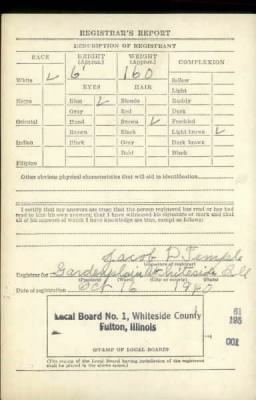 REGISTRAR'S REPORT
DESCRIPTION OF REGISTRANT
RACE HEIGHT (Approx.) WEIGHT (Approx.) COMPLEXION
6' 160
White Sallow
Light
EYES HAIR
Negro Blue Blonde Ruddy
Gray Red Dark
Oriental Hazel Brown Freckled
Brown Black Light brown
Indian Black Gray Dark brown
Bald Black
Filipino
Other obvious physical characteristics that will aid in identification
I certify that my answers are true; that the person registered has read or has had
read to him his own answers; that I have witnessed his signature or mark and that
all of his answers of which I have knowledge are true, except as follows:
Jacob D
(Signature of registrar)
Registrar for Garden Plain Whiteside Ill
(Precinct) (Ward) (City or county) (State)
Date of registration Oct 16 1940
Local Board No. 1, Whiteside County
Fulton, Illinois
61
195
001
STAMP OF LOCAL BOARD
(The stamp of the Local Board having jurisdiction of the registrant
shall be placed in the above space.)